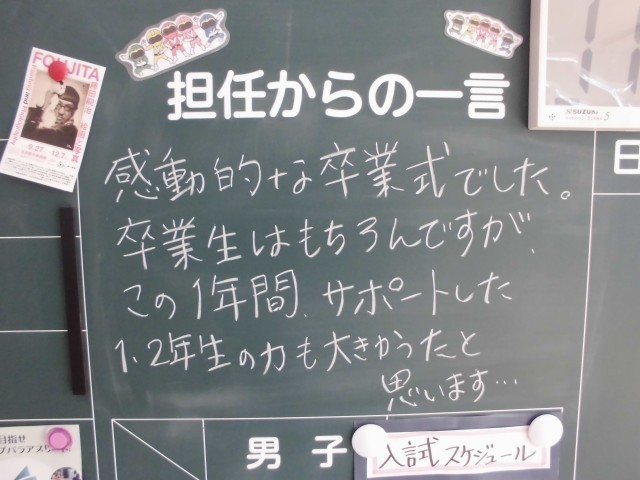 FOUJITA
9.27
担任からの一言
SUZUKI
日
感動的な卒業式でした。
卒業生はもちろんですが、
この1年間、サポートした
1、2年生の力も大きかったと
思います…
目指せ
男子
入試スケジュール